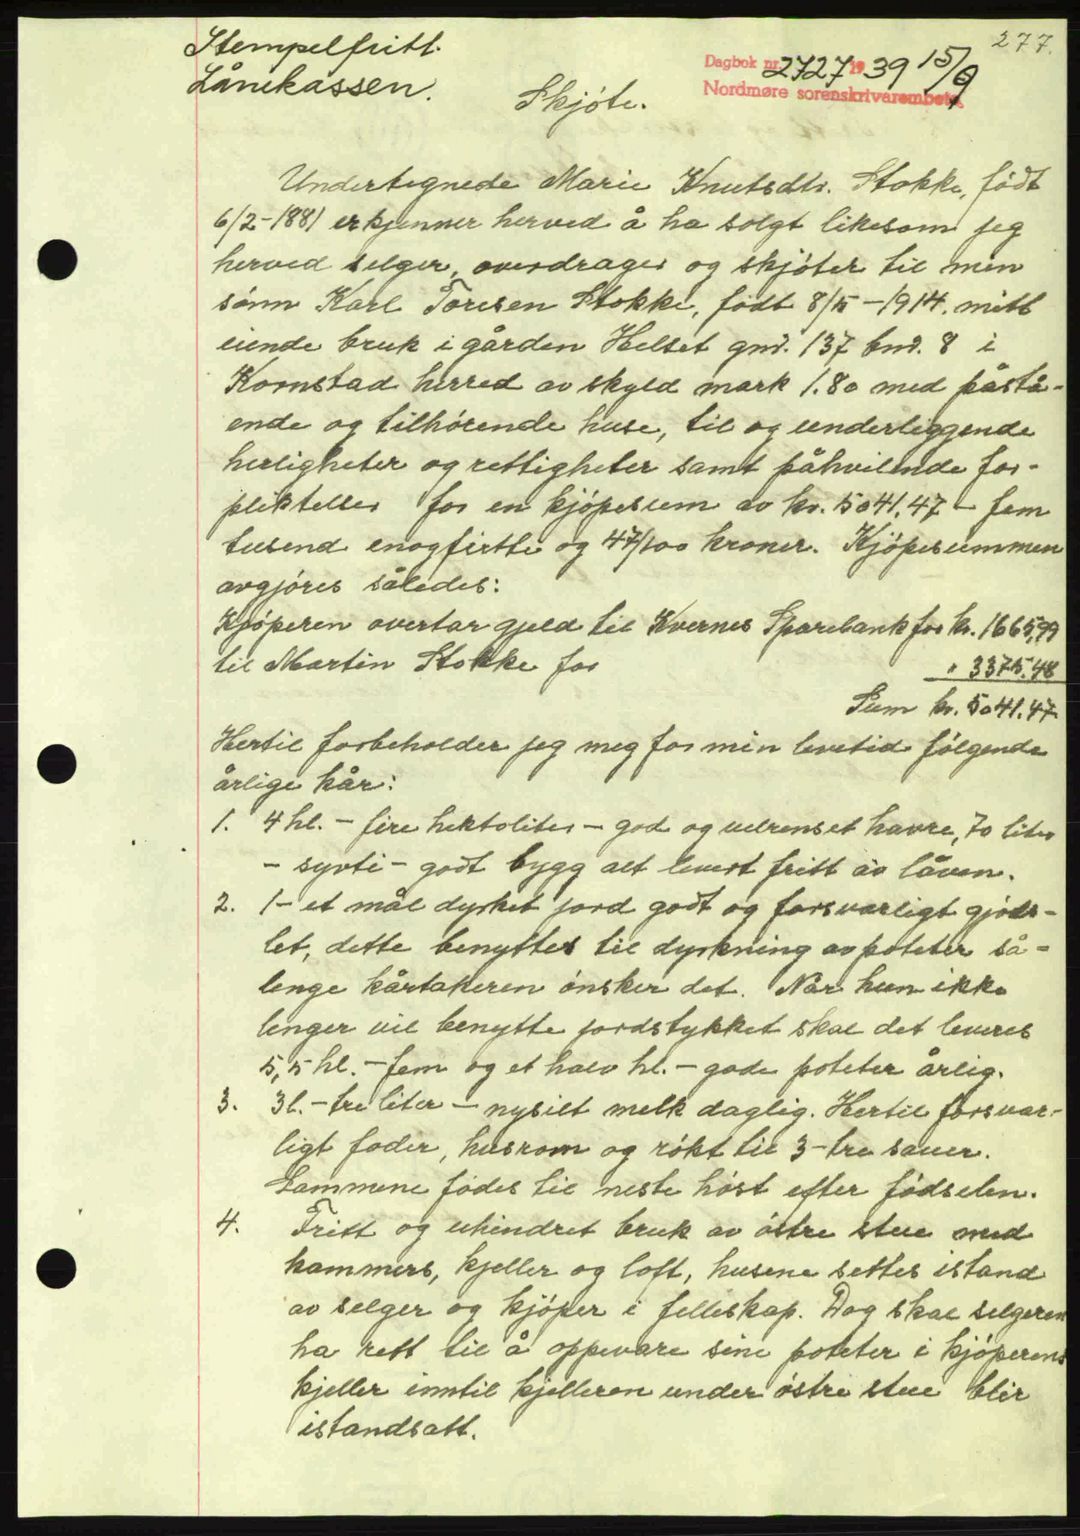 277.
Stempelfritt.
Lånekassen.
Dagbok nr. 2727 1939 15/9
Nordmøre sorenskrivarembete
Skjøte.
Undertegnede Marie Knutsdtr. Stokke, født
6/2-1881 erkjenner herved å ha solgt likesom jeg
herved selger, overdrager og skjøter til min
sønn Karl Toresen Stokke, født 8/5-1914. mitt
eiende bruk i gården Helset gnr. 137 bnr. 8 i
Kornstad herred av skyld mark 1.80 med påstå-
ende og tilhørende huse, til og underliggende
herligheter og rettigheter samt påhvilende for-
pliktelser for en kjøpesum av kr. 5041.47 - fem
tusend enogførtti og 47/100 kroner. Kjøpesummen
avgjøres således:
Kjøperen overtar gjeld til Kvernes Sparebank for kr. 1665,99
til Martin Stokke for " 3375.48
Sum kr. 5041.47
Hertil forbeholder jeg meg for min levetid følgende
årlige kår:
1. 4 hl. - fire hektoliter - god og velrenset havre, 70 liter
- sytti - godt bygg alt levert fritt av låven.
2. 1 - et mål dyrket jord godt og forsvarligt gjøds-
let, dette benyttes til dyrkning av poteter så-
lenge kårtakeren ønsker det. Når hun ikke
lenger vil benytte jordstykket skal det leveres
5,5 hl. - fem og et halv hl. - gode poteter årlig.
3. 3 l. - tre liter - nysilt melk daglig. Hertil forsvar-
ligt foder, husrom og røkt til 3 - tre sauer.
Lammene fødes til neste høst efter fødselen.
4. Fritt og uhindret bruk av østre stue med
kammers, kjeller og loft, husene settes istand
av selger og kjøper i felleskap. Dog skal selgeren
ha rett til å oppevare sine poteter i kjøperens
kjeller inntil kjelleren under østre stue blir
istandsatt.